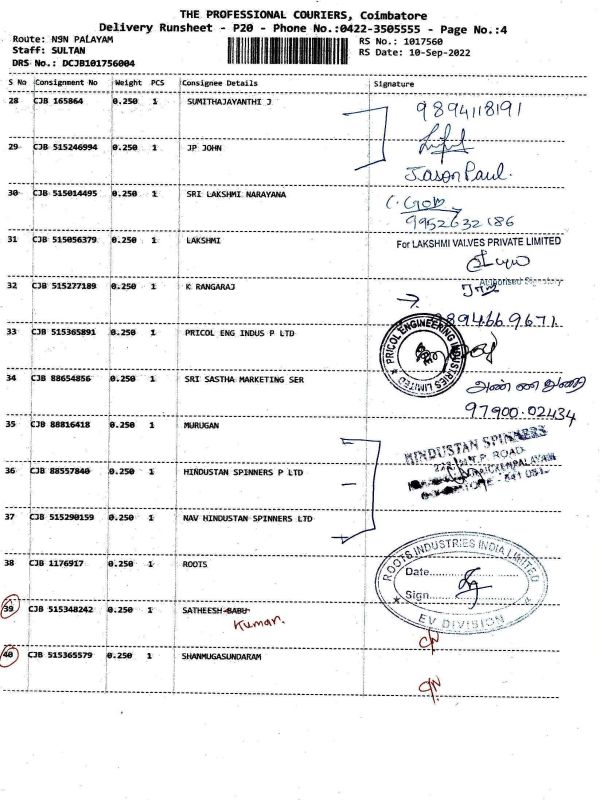 THE PROFESSIONAL COURIERS, Coimbatore
Delivery Runsheet - P20 - Phone No.:0422-3505555 - Page No.:4
Route: N9N PALAYAM
RS No.: 1017560
Staff: SULTAN
RS Date: 10-Sep-2022
DRS No.: DCJB101756004
S No Consignment No Weight PCS Consignee Details Signature
28 CJB 165864 0.250 1 SUMITHAJAYANTHI J
9894118191
29 CJB 515246994 0.250 1 JP JOHN
Jason Paul.
30 CJB 515014495 0.250 1 SRI LAKSHMI NARAYANA
9952632186
31 CJB 515056379 0.250 1 LAKSHMI
For LAKSHMI VALVES PRIVATE LIMITED
Authorised Signatory
32 CJB 515277189 0.250 1 K RANGARAJ
9894669671
33 CJB 515365891 0.250 1 PRICOL ENG INDUS P LTD
PRICOL ENGINEERING INDUSTRIES LIMITED
34 CJB 88654856 0.250 1 SRI SASTHA MARKETING SER
அண்ணாதுரை
97900-02434
35 CJB 88816418 0.250 1 MURUGAN
HINDUSTAN SPINNERS
36 CJB 88557840 0.250 1 HINDUSTAN SPINNERS P LTD
37 CJB 515290159 0.250 1 NAV HINDUSTAN SPINNERS LTD
38 CJB 1176917 0.250 1 ROOTS
ROOTS INDUSTRIES INDIA LIMITED
Date
Sign
EV DIVISION
39 CJB 515348242 0.250 1 SATHEESH BABU
Kumar.
CN
40 CJB 515365579 0.250 1 SHANMUGASUNDARAM
CN